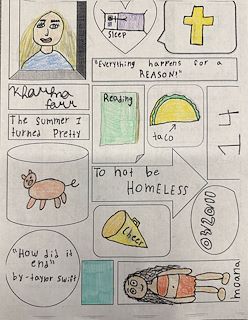 Sleep
"Everything happens for a
REASON!"
Kharma
farr
Reading
taco
The Summer I
turned Pretty
14
To not be
HOMELESS
Cheer
"How did it
end"
by-taylor swift
moana